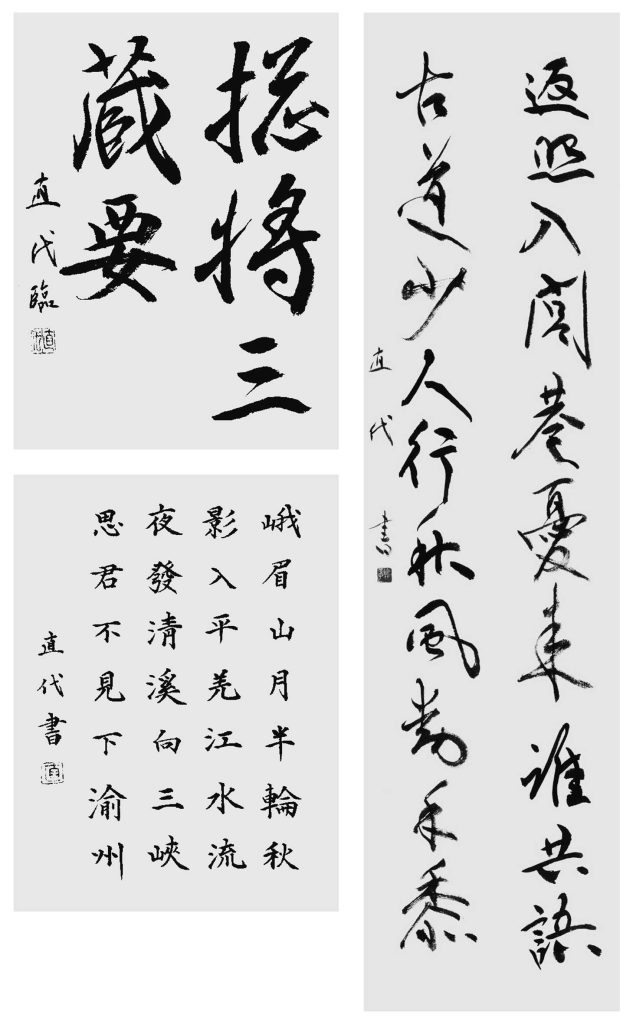 揔將三
藏要
直代臨
峨眉山月半輪秋
影入平羌江水流
夜發清溪向三峽
思君不見下渝州
直代書
返照入閭巷憂來誰共語
古道少人行秋風動禾黍
直代書